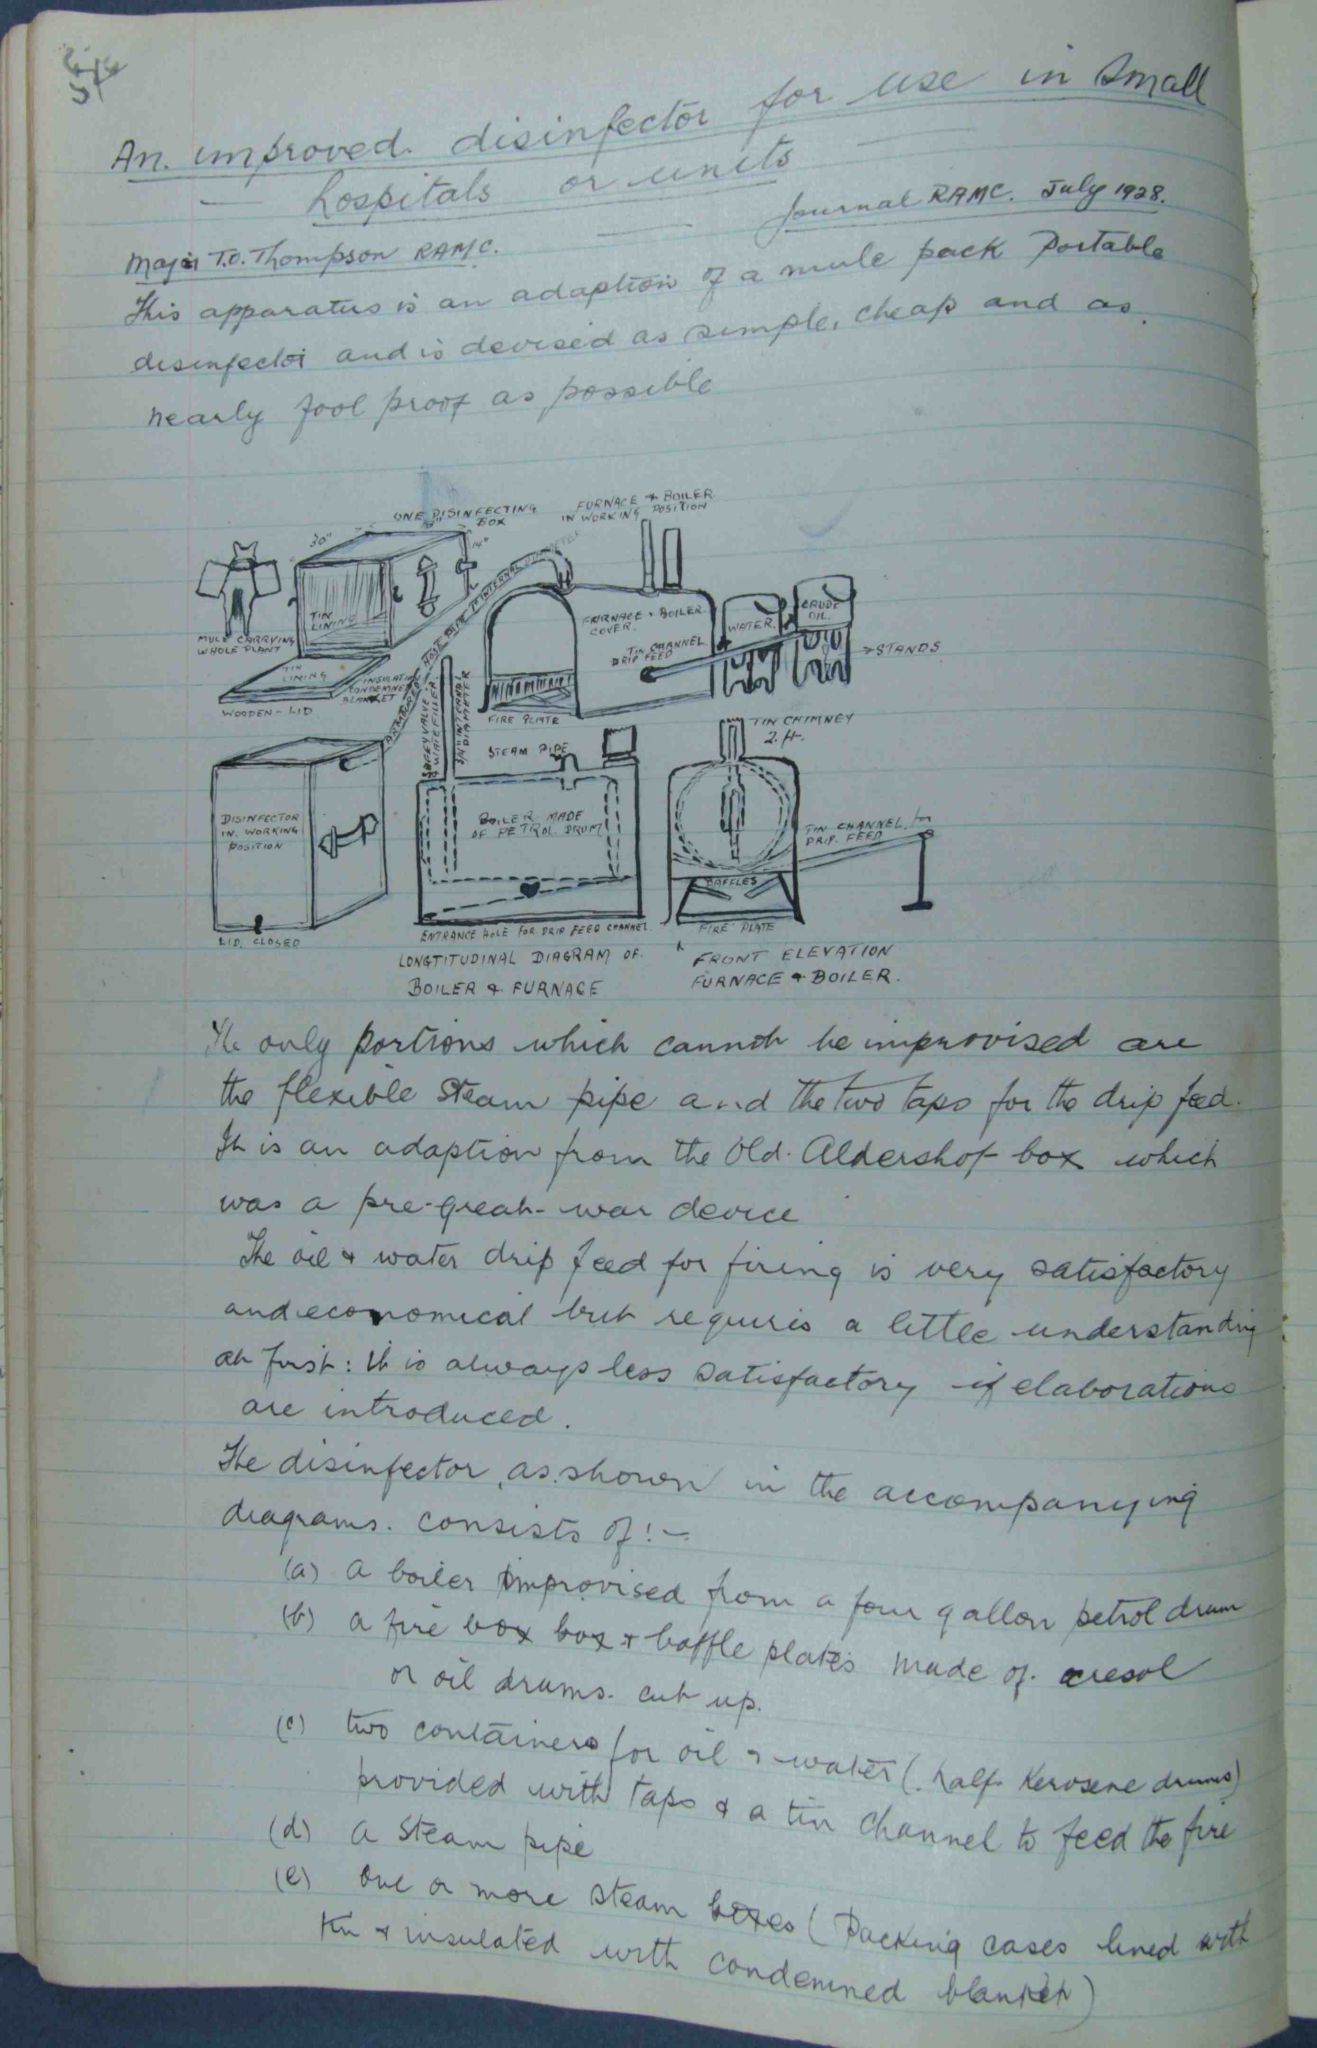 An. improved. disinfector for use in Small
hospitals or units
Journal RAMC. July 1928.
Major T.O. Thompson RAMC.
This apparatus is an adaption of a mule pack Portable
disinfector and is devised as simple, cheap and as
nearly fool proof as possible
ONE DISINFECTING
BOX
FURNACE & BOILER
IN WORKING POSITION
30"
14"
MULE CARRYING
WHOLE PLANT
TIN
LINING
TIN
LINING
INSULATION
CONDEMNED
BLANKET
WOODEN - LID
HOSE PIPE 1" INTERNAL DIAMETER
FURNACE & BOILER
COVER.
TIN CHANNEL
DRIP FEED
WATER
CRUDE
OIL.
STANDS
FIRE PLATE
SAFETY VALVE
& WATER FILLER
INTERNAL
DIAMETER
STEAM PIPE
TIN CHIMNEY
2. ft.
DISINFECTOR
IN. WORKING
POSITION
BOILER MADE
OF PETROL DRUM
TIN CHANNEL for
DRIP. FEED
BAFFLES
LID. CLOSED
ENTRANCE HOLE FOR DRIP FEED CHANNEL
FIRE PLATE
LONGTITUDINAL DIAGRAM OF.
BOILER & FURNACE
FRONT ELEVATION
FURNACE & BOILER.
The only portions which cannot be improvised are
the flexible steam pipe and the two taps for the drip feed.
It is an adaption from the Old. Aldershot box which
was a pre-great-war device
The oil & water drip feed for firing is very satisfactory
and economical but requires a little understanding
at first: it is always less satisfactory if elaborations
are introduced.
The disinfector, as shown in the accompanying
diagrams. consists of:-
(a) a boiler improvised from a four gallon petrol drum
(b) a fire box box & baffle plates made of cresol
or oil drums. cut up.
(c) two containers for oil & water (. half Kerosene drums)
provided with taps & a tin channel to feed the fire
(d) a steam pipe
(e) one or more steam boxes (Packing cases lined with
tin & insulated with condemned blanket)